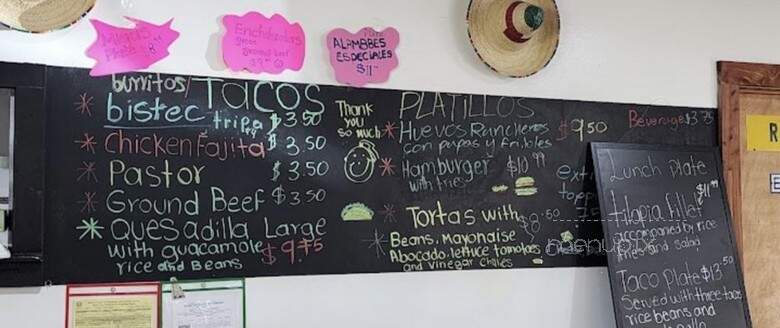 Enchiladas
ground beef
Plato
ALAMBRES
ESPECIALES
$11
burritos/TACOS
bistec tripa $3.50
Chicken Fajita $3.50
Pastor $3.50
Ground Beef $3.50
Quesadilla Large
with guacamole $9.75
rice and Beans
Thank
you
so much
PLATILLOS
Huevos Rancheros $9.50
con papas y frijoles
Hamburger $10.99
with fries
Tortas with $8.50
Beans, Mayonaise
Abocado, lettuce tomatoes
and vinegar chiles
Beverage $3.75
menupix
Lunch Plate
$11.99
tilapia fillet
accompanied by rice
fries and salad
Taco Plate $13.50
Served with three tacos
rice beans and
R